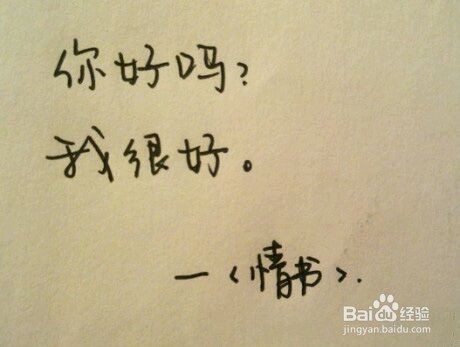 你好吗?
我很好。
—<情书>.
Bai du 经验
jingyan.baidu.com